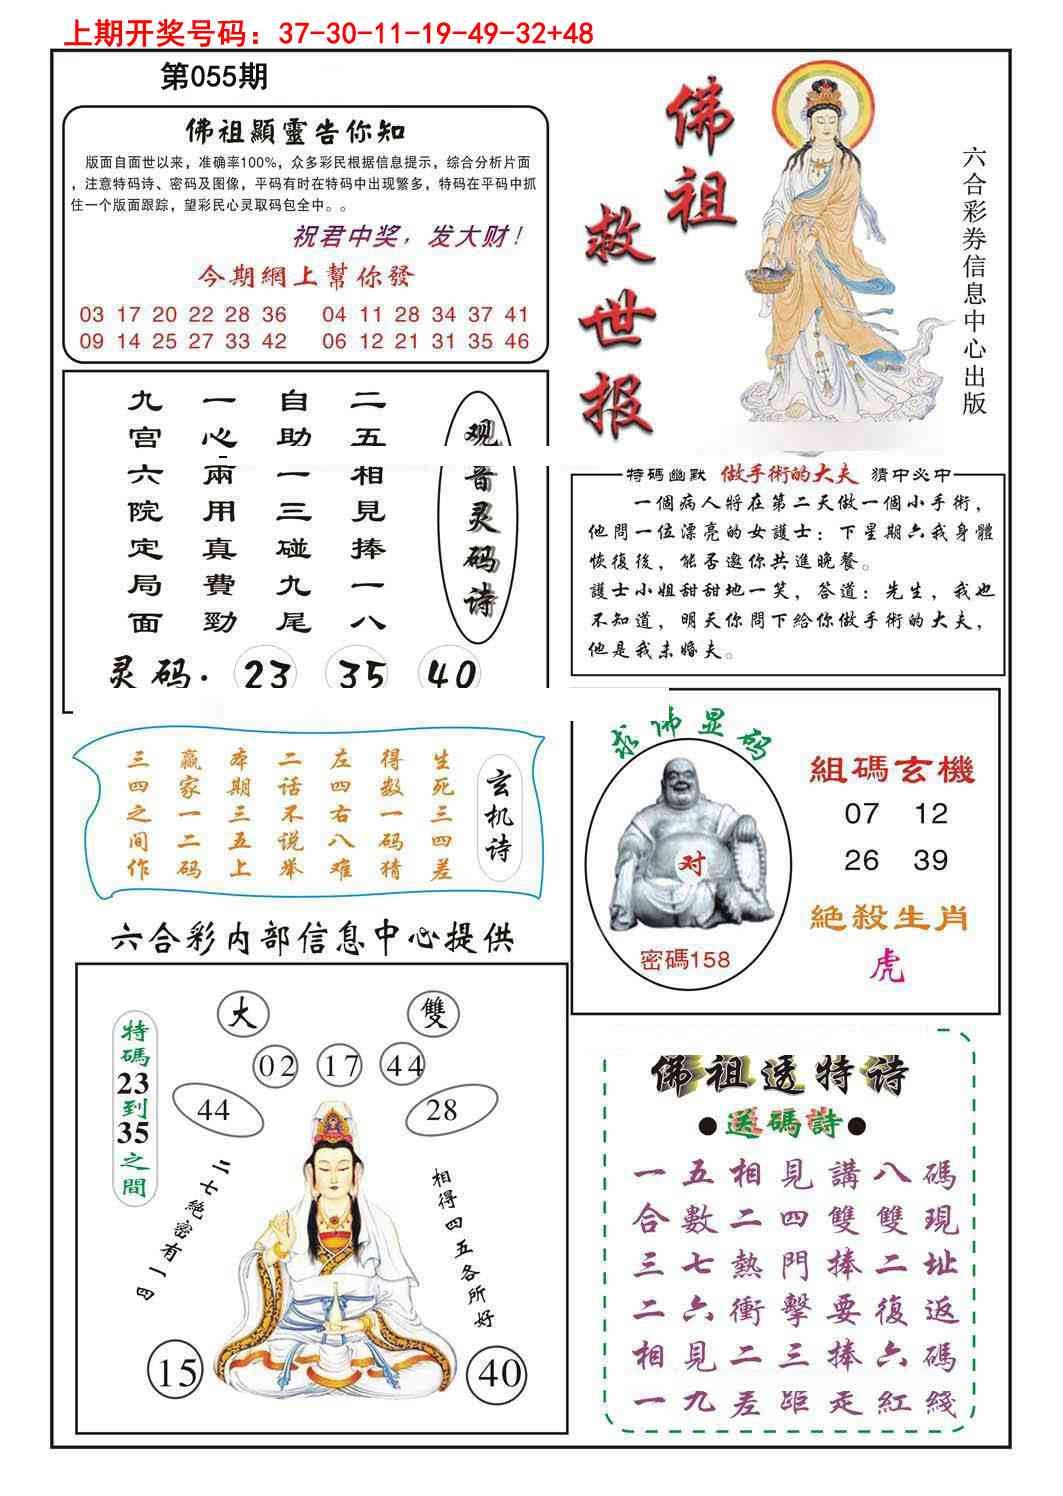 上期开奖号码：37-30-11-19-49-32+48
第055期
佛祖顯靈告你知
版面自面世以来，准确率100%，众多彩民根据信息提示，综合分析片面
，注意特码诗、密码及图像，平码有时在特码中出现繁多，特码在平码中抓
住一个版面跟踪，望彩民心灵取码包全中。。
祝君中奖，发大财！
今期網上幫你發
03 17 20 22 28 36 04 11 28 34 37 41
09 14 25 27 33 42 06 12 21 31 35 46
佛祖
救世报
六合彩券信息中心出版
观音灵码诗
二五相見捧一八
自助一三碰九尾
一心兩用真費勁
九宫六院定局面
灵码. 23 35 40
特碼幽默 做手術的大夫 猜中必中
一個病人將在第二天做一個小手術，
他問一位漂亮的女護士：下星期六我身體
恢復後，能否邀你共進晚餐。
護士小姐甜甜地一笑，答道：先生，我也
不知道，明天你問下給你做手術的大夫，
他是我未婚夫。
玄机诗
生死三四差
得数一码猜
左四右八难
二话不说举
本期三五上
赢家一二码
三四之间作
求佛显码
对
密碼158
組碼玄機
07 12
26 39
絕殺生肖
虎
六合彩内部信息中心提供
大 雙
02 17 44
44 28
特碼23到35之間
二七絕密有一四
相得四五各所好
15 40
佛祖透特诗
●送碼詩●
一五相見講八碼
合數二四雙雙現
三七熱門捧二址
二六衝擊要復返
相見二三捧六碼
一九差距走紅綫